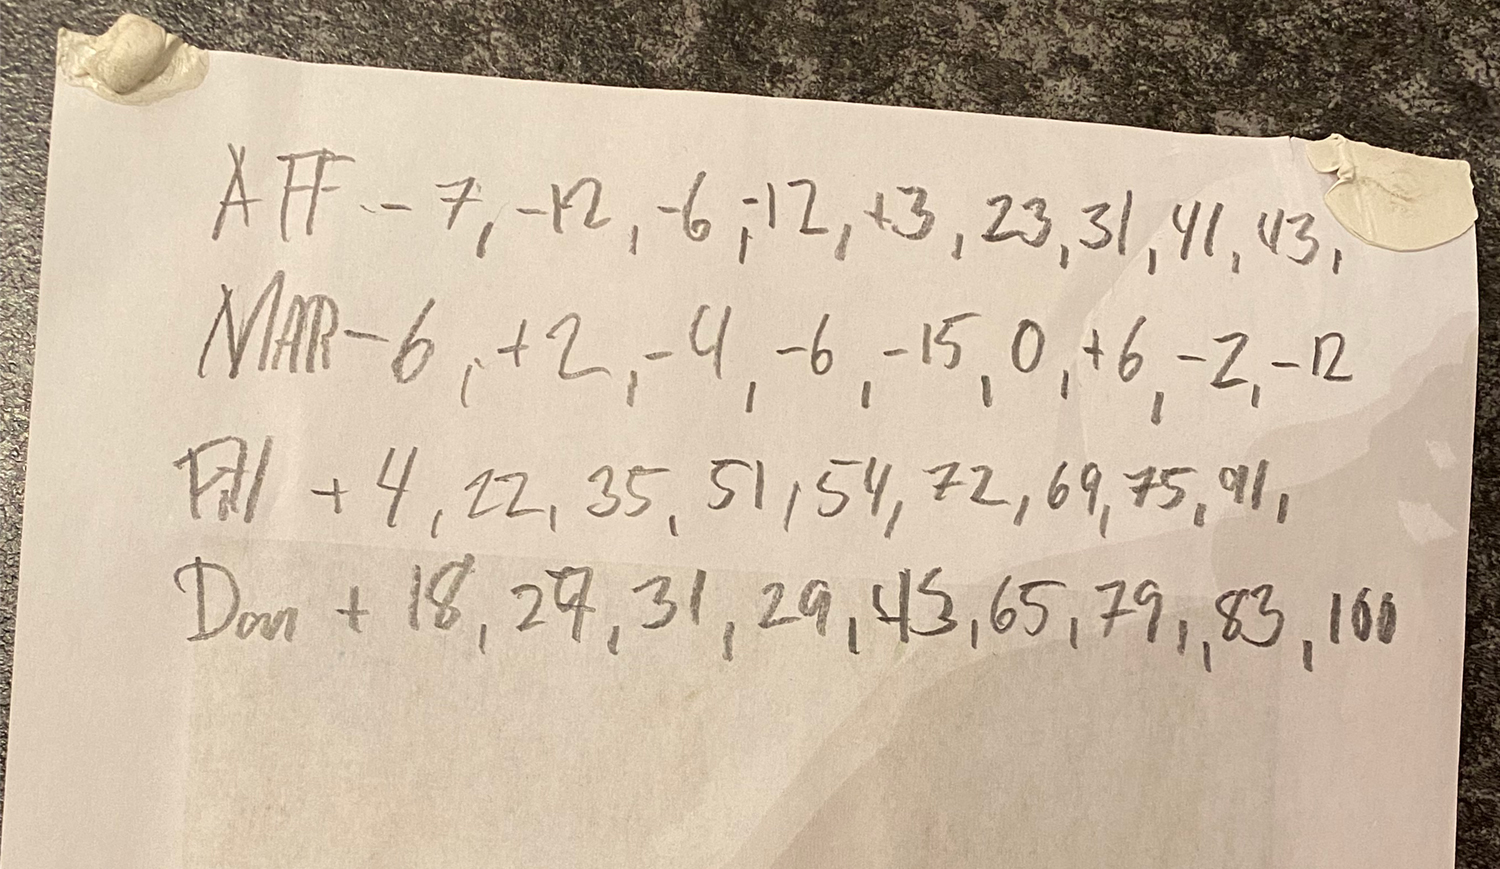 AFF - 7, -12, -6, -12, +3, 23, 31, 41, 43,
MAR - 6, +2, -4, -6, -15, 0, +6, -2, -12
+ 4, 22, 35, 51, 54, 72, 69, 75, 91,
Dan + 18, 31, 29, 45, 65, 79, 83, 100